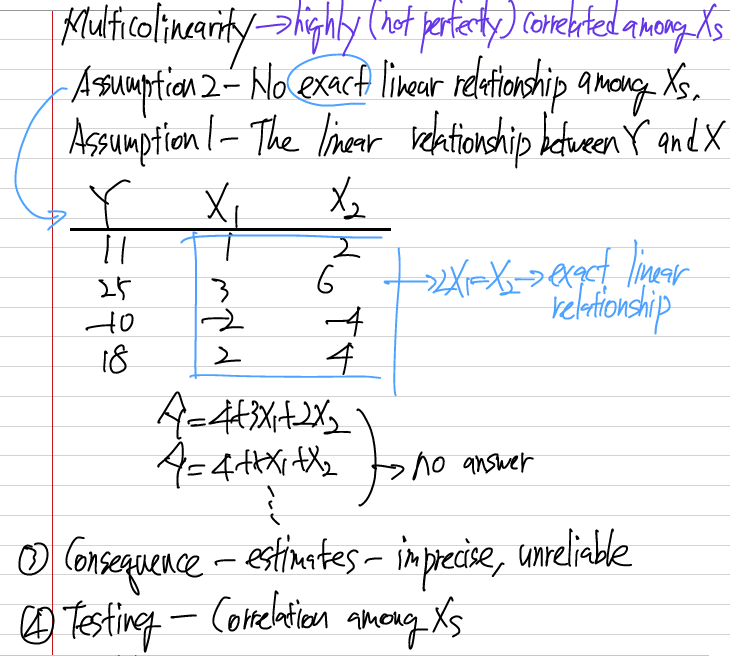 Multicolinearity → highly (not perfectly) correlated among Xs
Assumption 2 - No exact linear relationship among Xs.
Assumption 1 - The linear relationship between Y and X
Y X₁ X₂
11 1 2
25 3 6
-10 -2 -4
18 2 4
→ 2X₁=X₂ → exact linear
relationship
Ŷ=4+3X₁+2X₂
Ŷ=4+ X₁+X₂
→ no answer
③ Consequence - estimates - imprecise, unreliable
④ Testing - Correlation among Xs